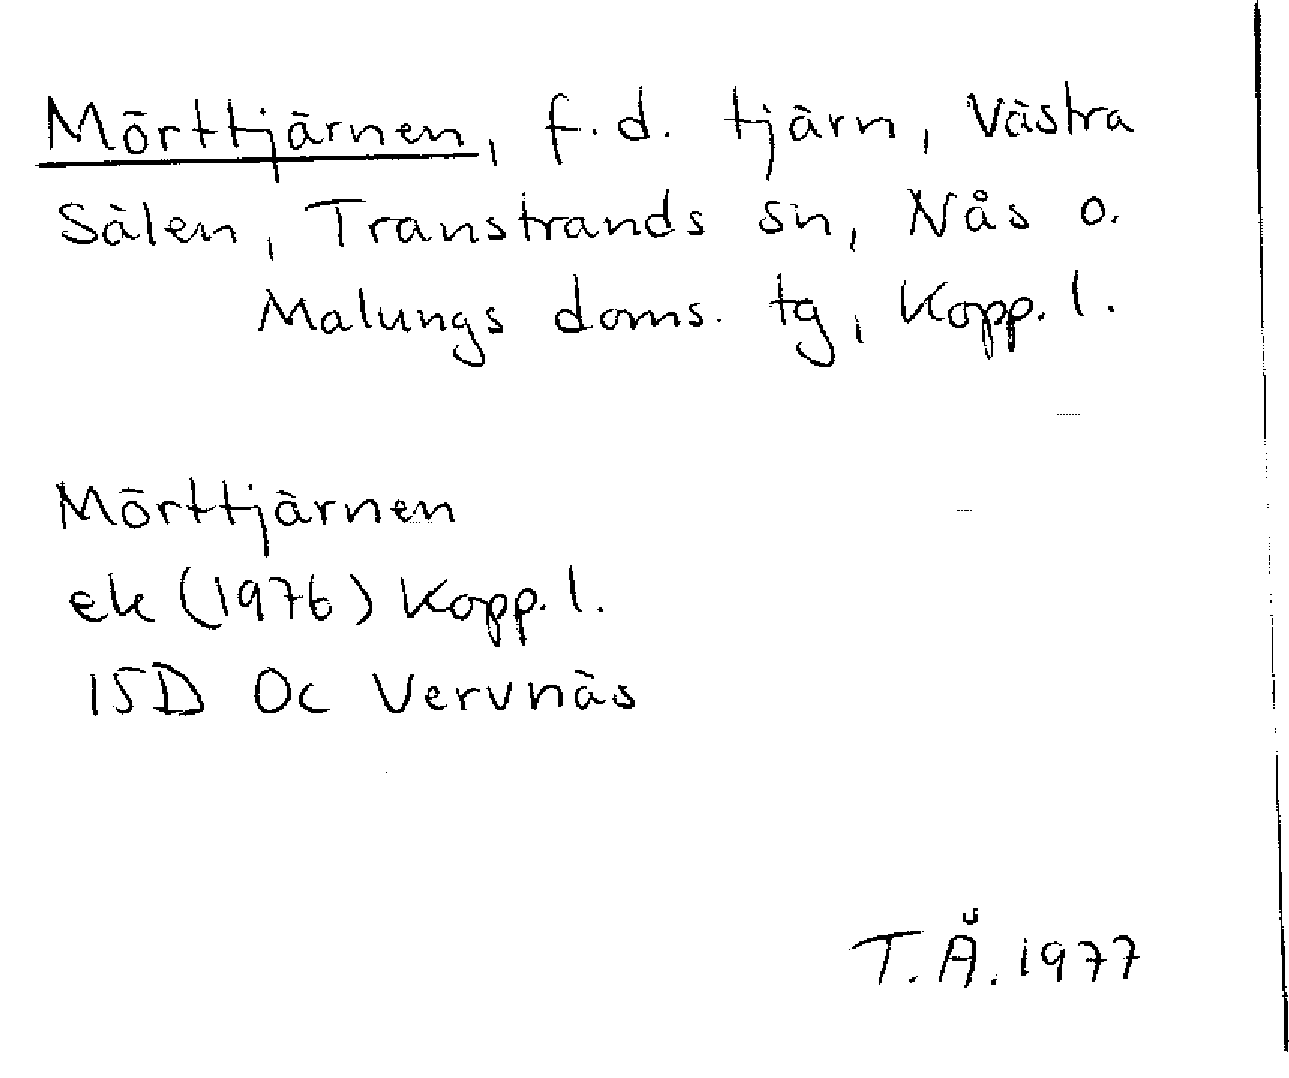 Mörttjärnen, f.d. tjärn, Västra
Sälen, Transtrands sn, Nås o.
Malungs doms. tg, Kopp. l.
Mörttjärnen
ek (1976) Kopp. l.
15D 0c Vervnäs
T.Å. 1977